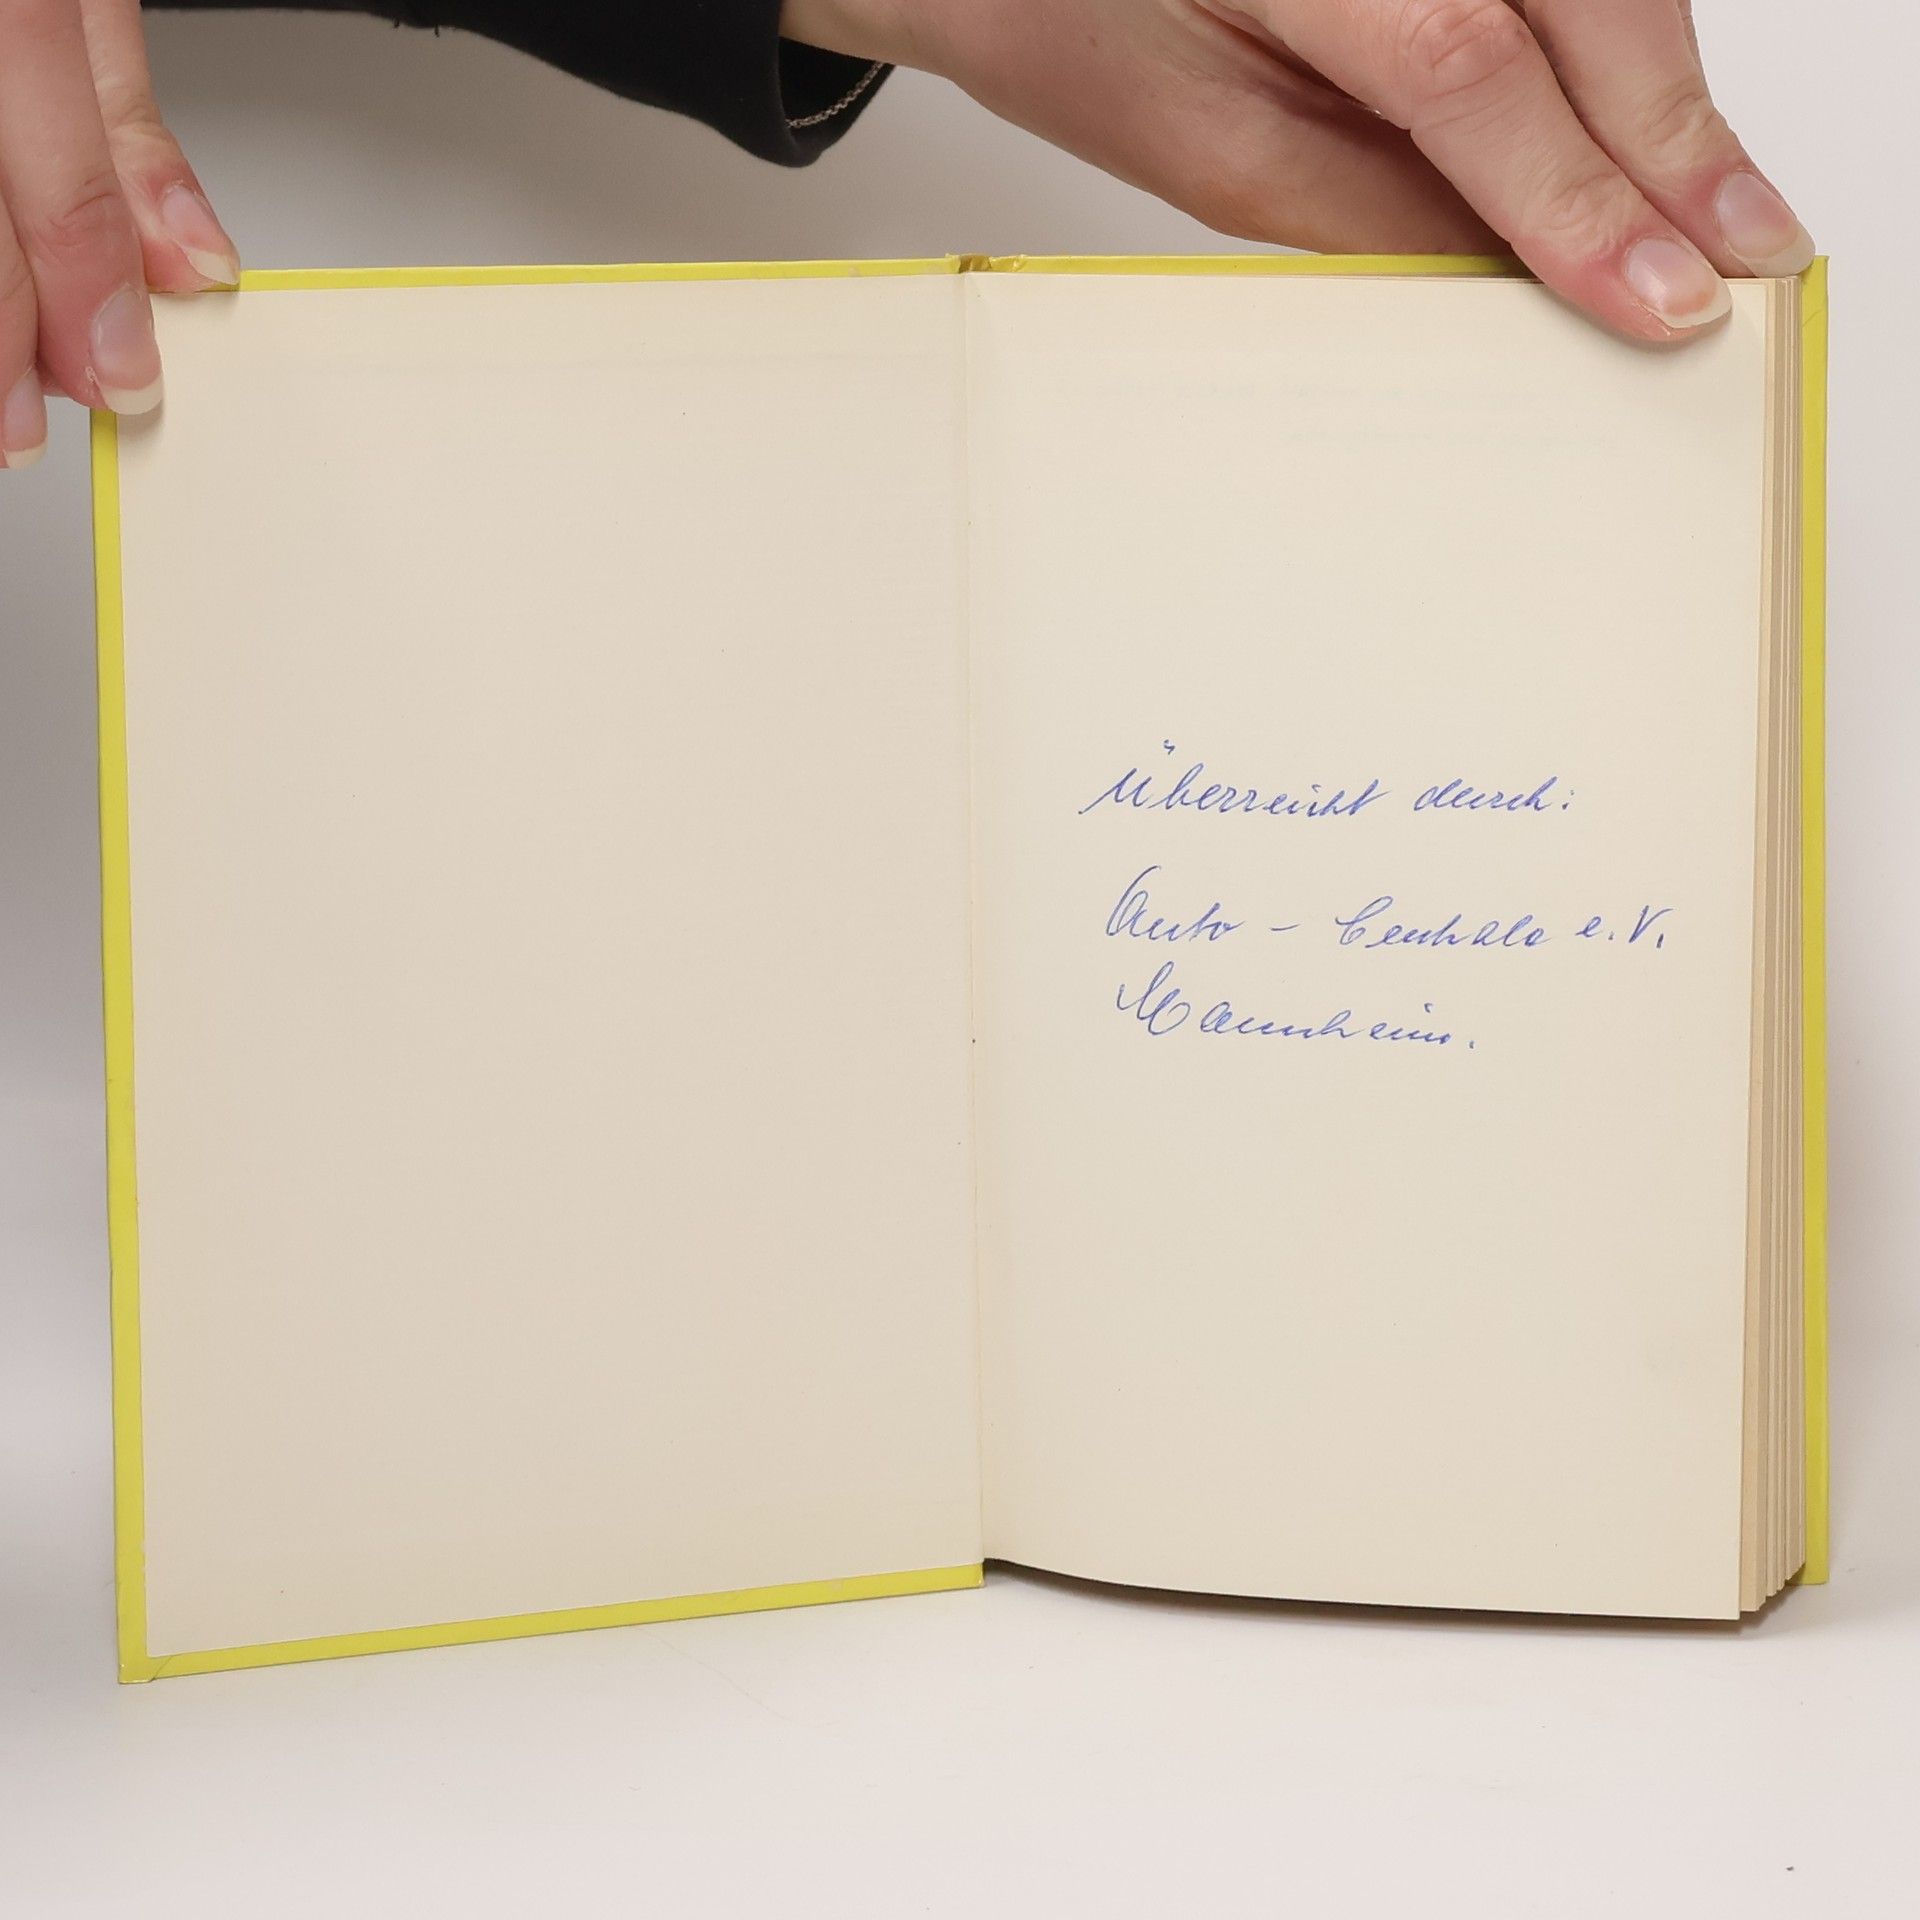 Überreicht durch:
Auto - Centrale e.V.
Mannheim.